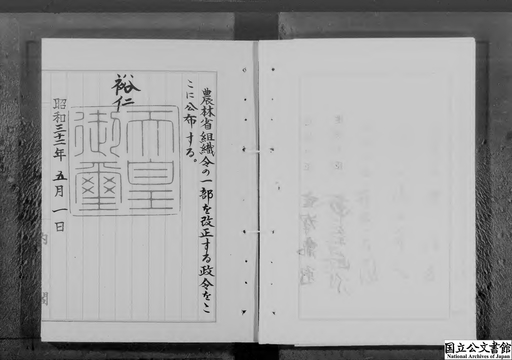 農林省組織令の一部を改正する政令をこ
こに公布する。
裕仁
天皇
御璽
昭和三十二年五月一日
国立公文書館
National Archives of Japan